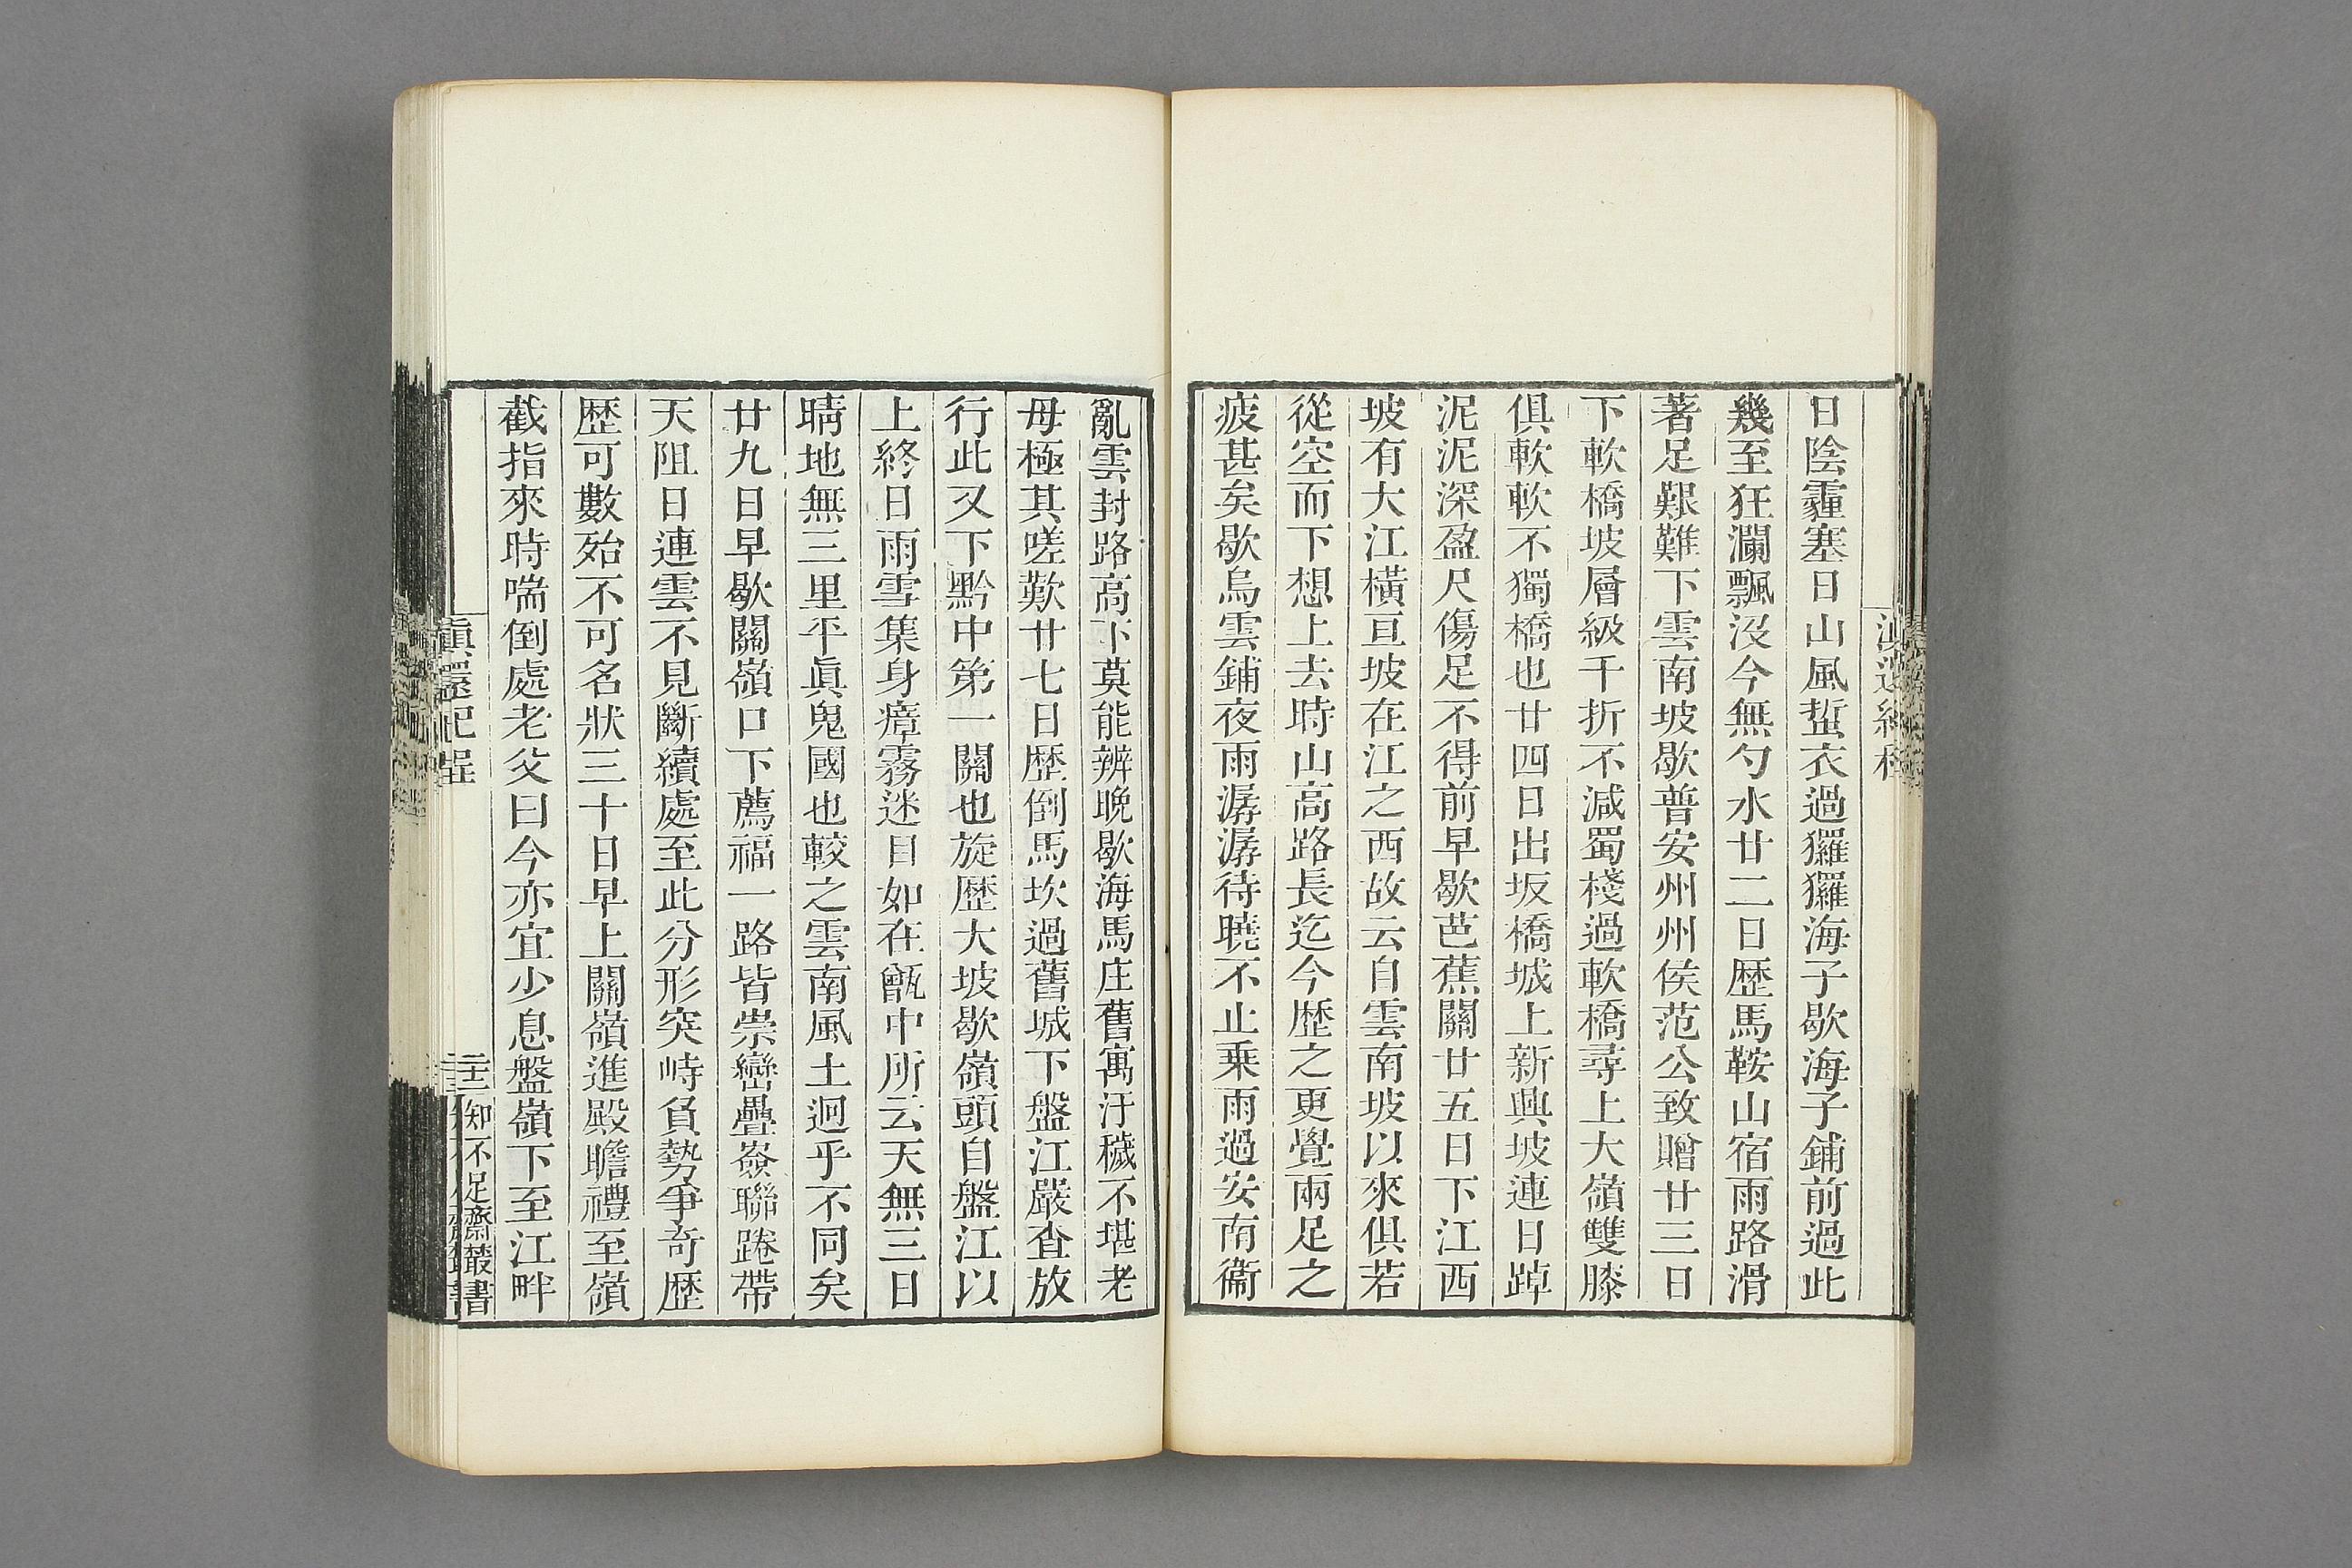 日陰霾塞日山風蜇衣過玀玀海子歇海子鋪前過此
幾至狂瀾飄沒今無勺水廿二日歷馬鞍山宿雨路滑
著足艱難下雲南坡歇普安州州侯范公致贈廿三日
下軟橋坡層級千折不減蜀棧過軟橋尋上大嶺雙膝
俱軟軟不獨橋也廿四日出坂橋城上新興坡連日踔
泥泥深盈尺傷足不得前早歇芭蕉關廿五日下江西
坡有大江橫亘坡在江之西故云自雲南坡以來俱若
從空而下想上去時山高路長迄今歷之更覺兩足之
疲甚矣歇烏雲鋪夜雨潺潺待曉不止乘雨過安南衞
亂雲封路高下莫能辨晚歇海馬庄舊寓汙穢不堪老
母極其嗟歎廿七日歷倒馬坎過舊城下盤江嚴查放
行此又下黔中第一關也旋歷大坡歇嶺頭自盤江以
上終日雨雪集身瘴霧迷目如在甑中所云天無三日
晴地無三里平眞鬼國也較之雲南風土迥乎不同矣
廿九日早歇關嶺口下薦福一路皆崇巒疊嶔聯踡帶
天阻日連雲不見斷續處至此分形突峙負勢爭奇歷
歷可數殆不可名狀三十日早上關嶺進殿瞻禮至嶺
截指來時喘倒處老父曰今亦宜少息盤嶺下至江畔
滇還紀程
二十三
知不足齋叢書